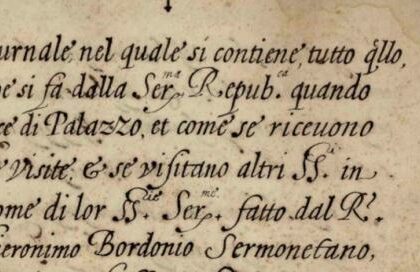 urnale, nel quale si contiene, tutto q̃llo,
e si fà dalla Ser.ma Repub.ca quando
ce di Palazzo, et come se riceuono
visite, & se visitano altri SS.ri in
ome di lor SS.rie Ser.me fatto dal R.do
ieronimo Bordonio Sermonetano,